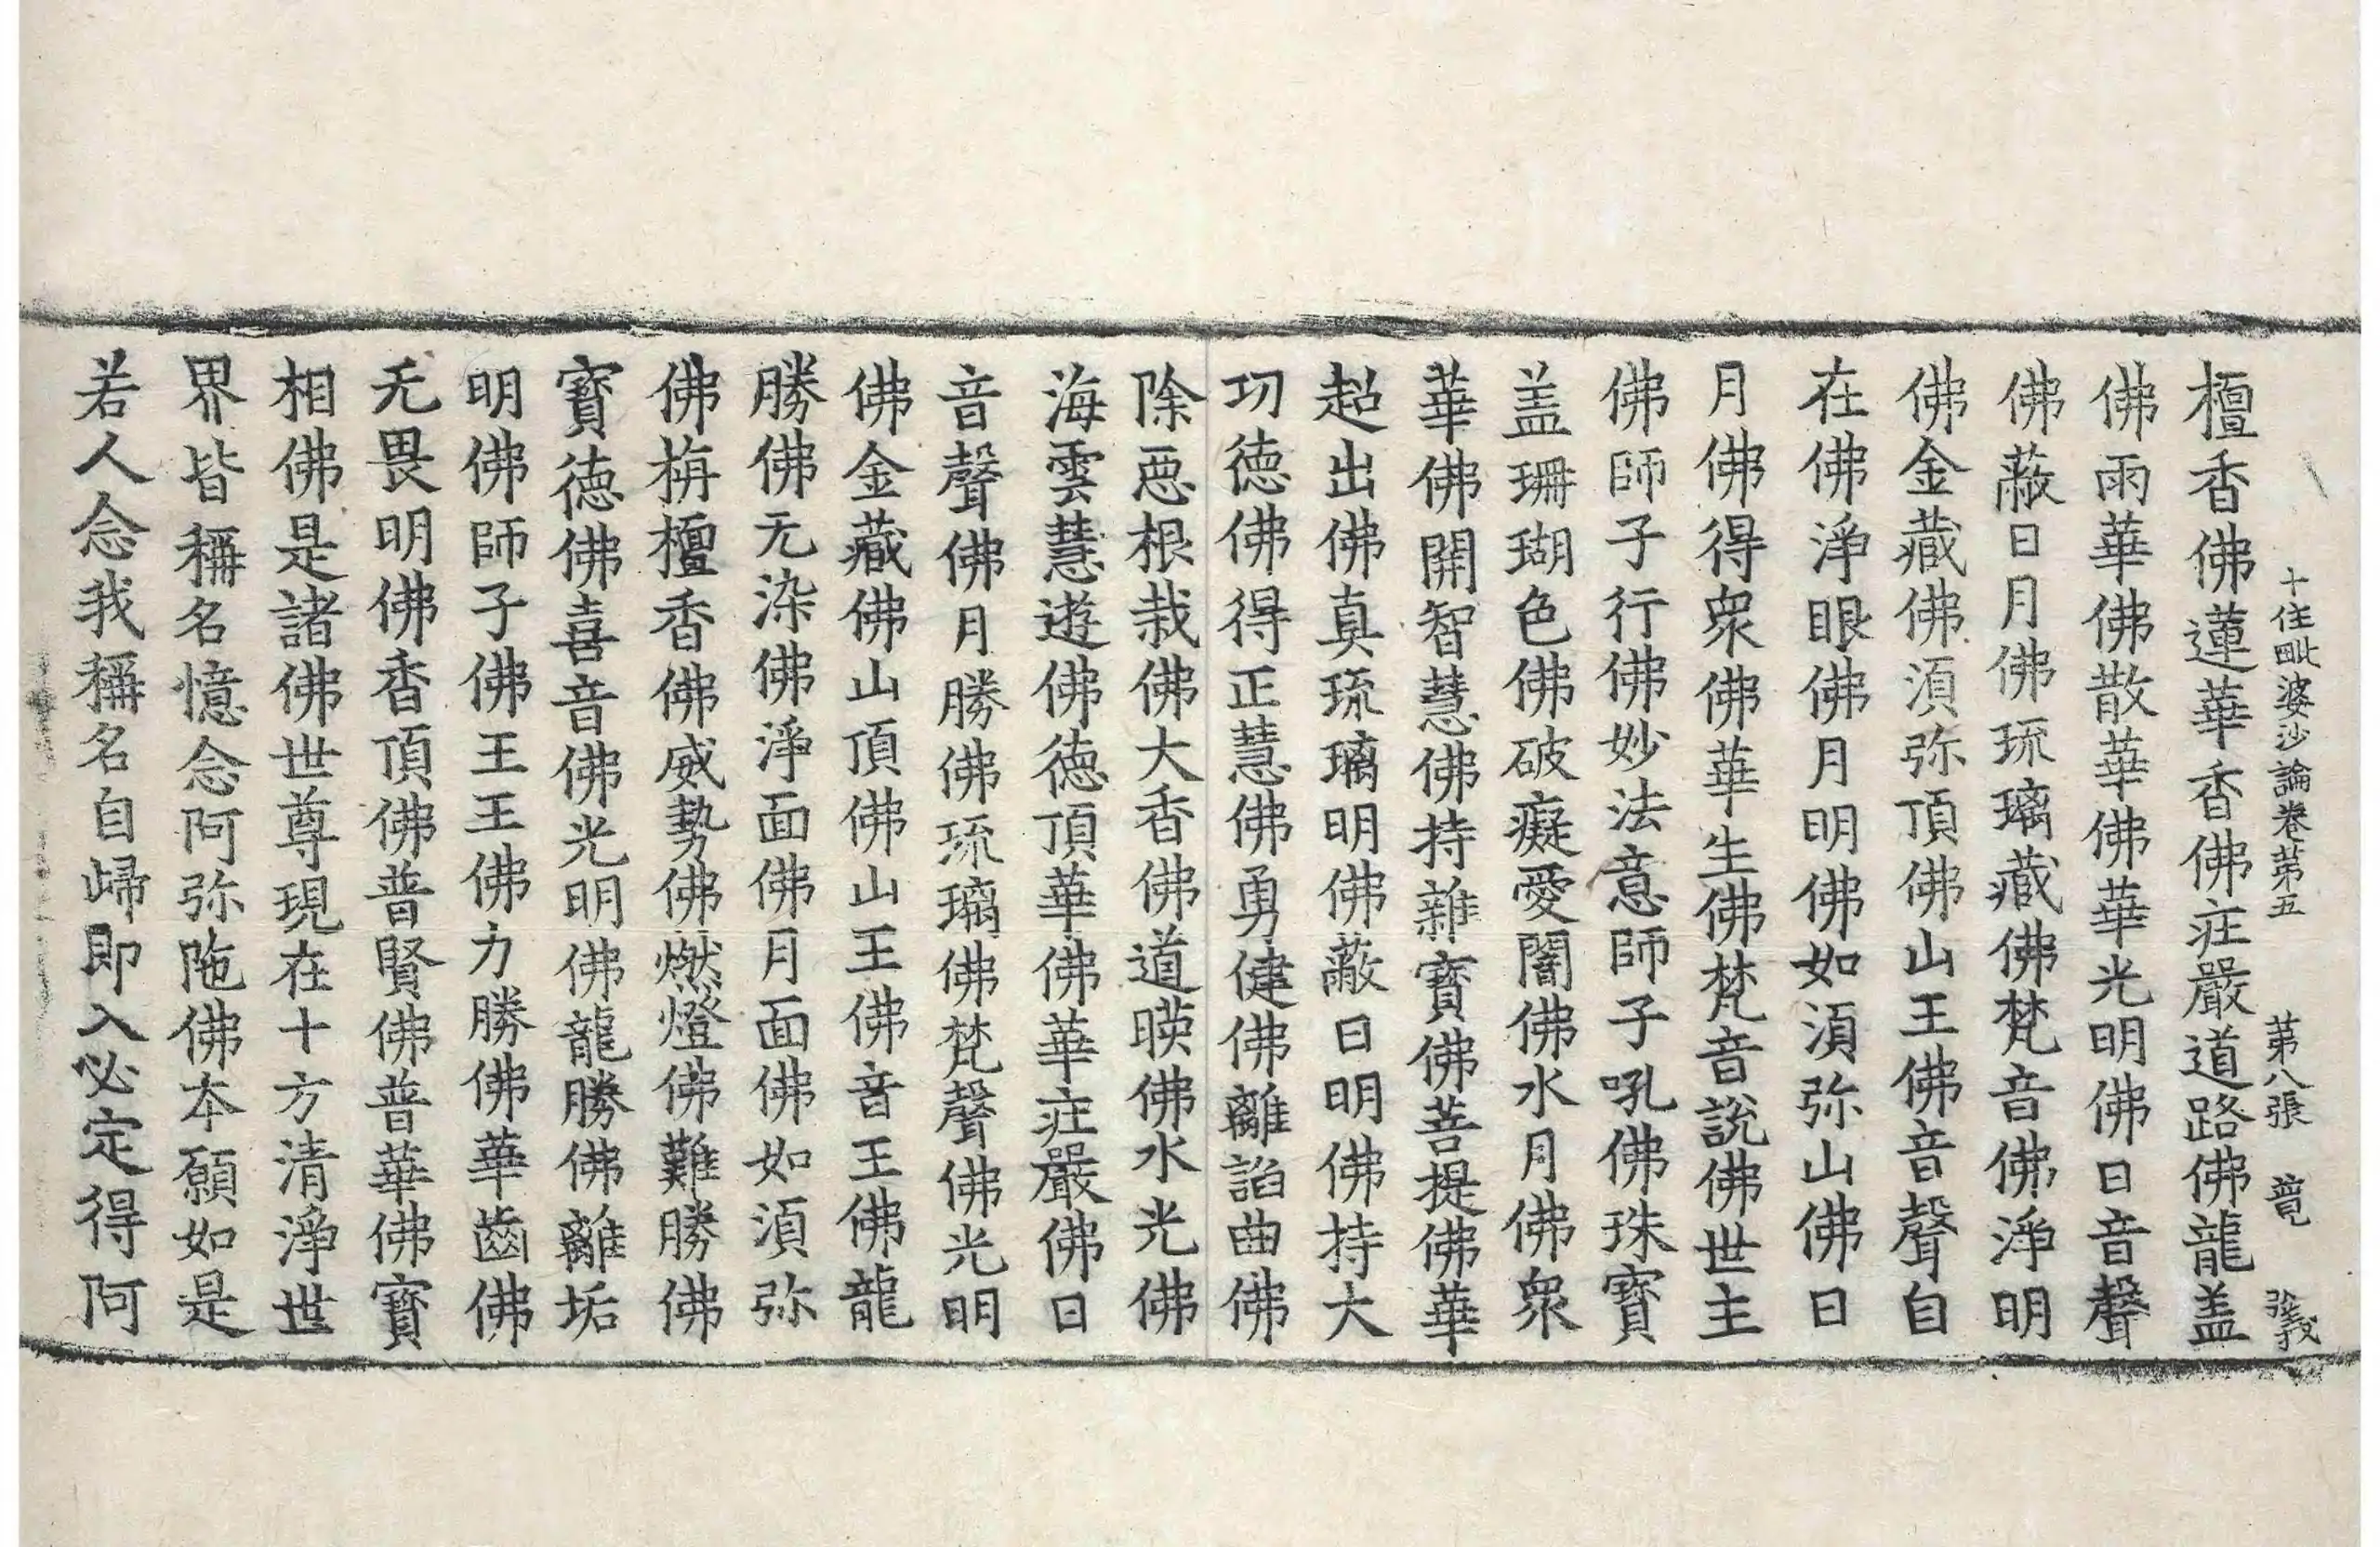 十住毗婆沙論卷第五 第八張 竟
檀香佛蓮華香佛㽵嚴道路佛龍盖
佛雨華佛散華佛華光明佛日音聲
佛蔽日月佛琉璃藏佛梵音佛淨明
佛金藏佛湏弥頂佛山王佛音聲自
在佛淨眼佛月明佛如湏弥山佛日
月佛得衆佛華生佛梵音說佛世主
佛師子行佛妙法意師子吼佛珠寶
盖珊瑚色佛破癡愛闇佛水月佛衆
華佛開智慧佛持雜寶佛菩提佛華
超出佛真琉璃明佛蔽日明佛持大
功德佛得正慧佛勇健佛離諂曲佛
除惡根栽佛大香佛道暎佛水光佛
海雲慧遊佛德頂華佛華㽵嚴佛日
音聲佛月勝佛琉璃佛梵聲佛光明
佛金藏佛山頂佛山王佛音王佛龍
勝佛无染佛淨面佛月面佛如湏弥
佛栴檀香佛威勢佛燃燈佛難勝佛
寶德佛喜音佛光明佛龍勝佛離垢
明佛師子佛王王佛力勝佛華齒佛
无畏明佛香頂佛普賢佛普華佛寶
相佛是諸佛世尊現在十方清淨世
界皆稱名憶念阿弥陁佛本願如是
若人念我稱名自歸即入必定得阿